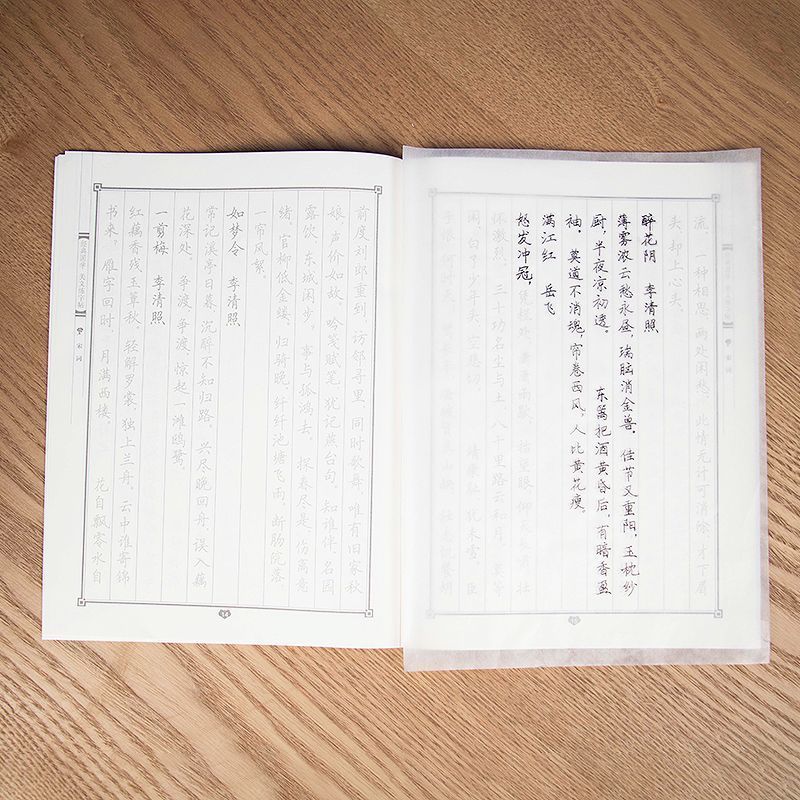 前度刘郎重到，访邻寻里，同时歌舞，唯有旧家秋
娘，声价如故。吟笺赋笔，犹记燕台句。知谁伴、名园
露饮，东城闲步？事与孤鸿去。探春尽是，伤离意
绪。官柳低金缕。归骑晚，纤纤池塘飞雨，断肠院落，
一帘风絮。
如梦令 李清照
常记溪亭日暮，沉醉不知归路。兴尽晚回舟，误入藕
花深处。争渡，争渡，惊起一滩鸥鹭。
一剪梅 李清照
红藕香残玉簟秋，轻解罗裳，独上兰舟。云中谁寄锦
书来？雁字回时，月满西楼。 花自飘零水自
宋词
流。一种相思，两处闲愁。此情无计可消除，才下眉
头，却上心头。
醉花阴 李清照
薄雾浓云愁永昼，瑞脑消金兽。佳节又重阳，玉枕纱
厨，半夜凉初透。 东篱把酒黄昏后，有暗香盈
袖。莫道不消魂，帘卷西风，人比黄花瘦。
满江红 岳飞
怒发冲冠，凭栏处、潇潇雨歇。抬望眼，仰天长啸，壮
怀激烈。三十功名尘与土，八千里路云和月。莫等
闲、白了少年头，空悲切。 靖康耻，犹未雪。臣
宋词